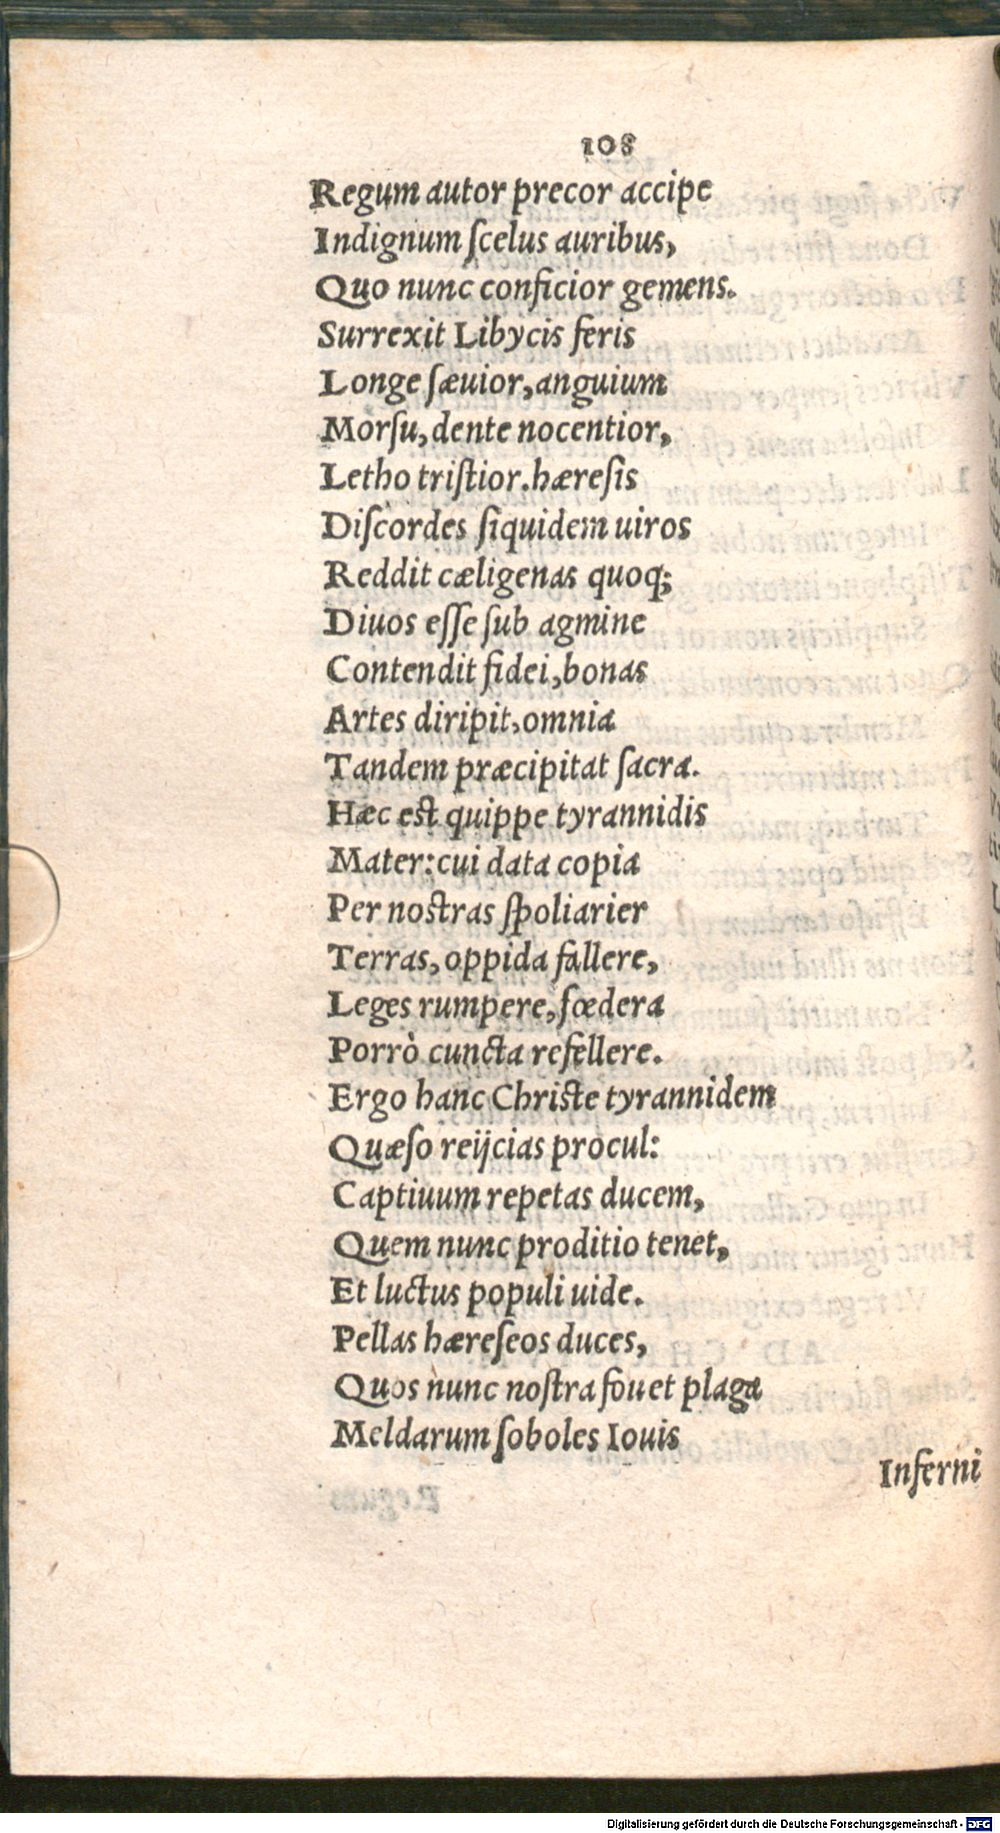 108
Regum autor precor accipe
Indignum ſcelus auribus,
Quo nunc conficior gemens.
Surrexit Libycis feris
Longe ſæuior, anguium
Morſu, dente nocentior,
Letho triſtior. hæreſis
Diſcordes ſiquidem uiros
Reddit cæligenas quoq;
Diuos eſſe ſub agmine
Contendit fidei, bonas
Artes diripit, omnia
Tandem præcipitat ſacra.
Hæc est quippe tyrannidis
Mater: cui data copia
Per nostras ſpoliarier
Terras, oppida fallere,
Leges rumpere, fœdera
Porrò cuncta refellere.
Ergo hanc Christe tyrannidem
Quæſo reijcias procul:
Captiuum repetas ducem,
Quem nunc proditio tenet,
Et luctus populi uide.
Pellas hæreſeos duces,
Quos nunc noſtra fouet plaga
Meldarum ſoboles Iouis
Inferni
Digitalisierung gefördert durch die Deutsche Forschungsgemeinschaft - DFG